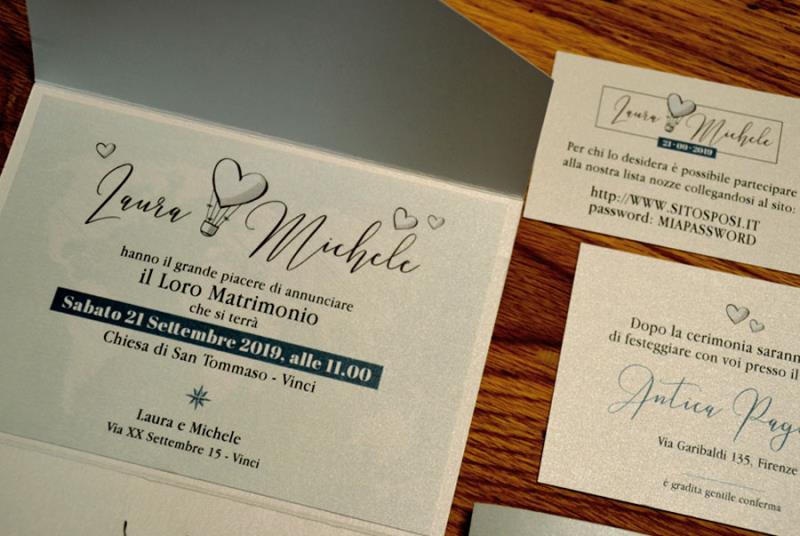 Laura Michele
hanno il grande piacere di annunciare
il Loro Matrimonio
che si terrà
Sabato 21 Settembre 2019, alle 11.00
Chiesa di San Tommaso - Vinci
Laura e Michele
Via XX Settembre 15 - Vinci
Laura Michele
21-09-2019
Per chi lo desidera è possibile partecipare
alla nostra lista nozze collegandosi al sito:
http://WWW.SITOSPOSI.IT
password: MIAPASSWORD
Dopo la cerimonia
di festeggiare con voi presso
Antica
Via Garibaldi 135, Firenze
è gradita gentile conferma